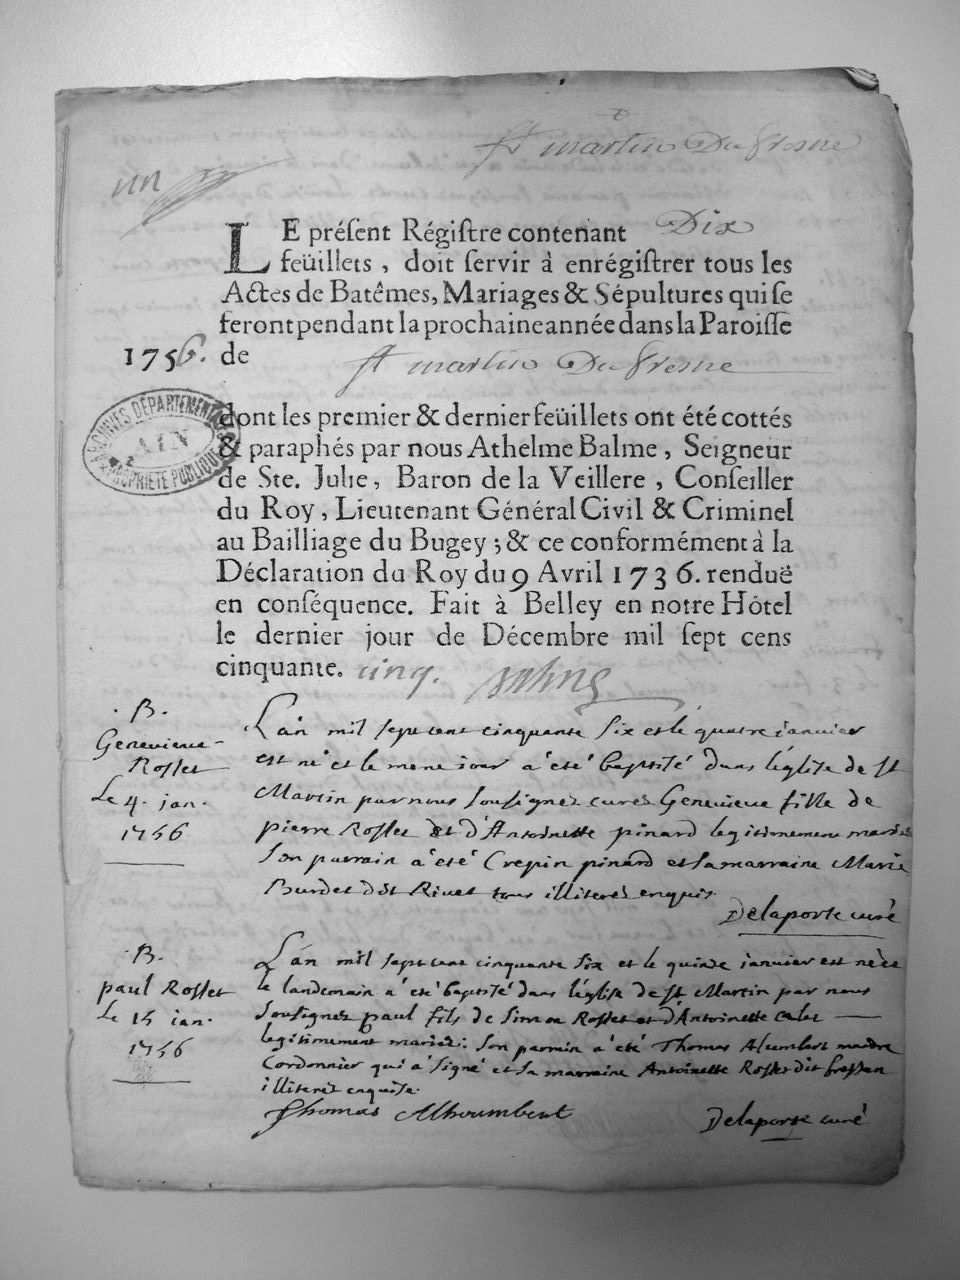 St martin Du fresne
un
LE présent Régistre contenant Dix
feüillets, doit servir à enrégistrer tous les
Actes de Batêmes, Mariages & Sépultures qui se
feront pendant la prochaine année dans la Paroisse
1756. de St martin Du fresne
ARCHIVES DÉPARTEMENTALES
AIN
PROPRIÉTÉ PUBLIQUE
dont les premier & dernier feüillets ont été cottés
& paraphés par nous Athelme Balme, Seigneur
de Ste. Julie, Baron de la Veillere, Conseiller
du Roy, Lieutenant Général Civil & Criminel
au Bailliage du Bugey; & ce conformément à la
Déclaration du Roy du 9 Avril 1736. renduë
en conséquence. Fait à Belley en notre Hôtel
le dernier jour de Décembre mil sept cens
cinquante. cinq.
B.
Genevieve
Rosset
Le 4. jan.
1756
L'an mil sept cent cinquante six et le quatre janvier
est né et le meme jour a été baptisé dans l'église de st
Martin par nous soussignez curez Genevieve fille de
pierre Rosset et d'Antoinette pinard legitimement mariez
son parrain a été Crepin pinard et sa marraine Marie
Burdet dit Rivet tous illiterés enquis
Delaporte curé
B.
paul Rosset
Le 15 jan.
1756
L'an mil sept cent cinquante six et le quinze janvier est né et
le landemain a été baptisé dans l'église de st Martin par nous
soussignez paul fils de Simon Rosset et d'Antoinette
legitimement mariez: son parrain a été Thomas Alumbert maitre
Cordonnier qui a signé et sa marraine Antoinette Rosset dit
illiterée enquise
Thomas Alhoumbert
Delaporte curé